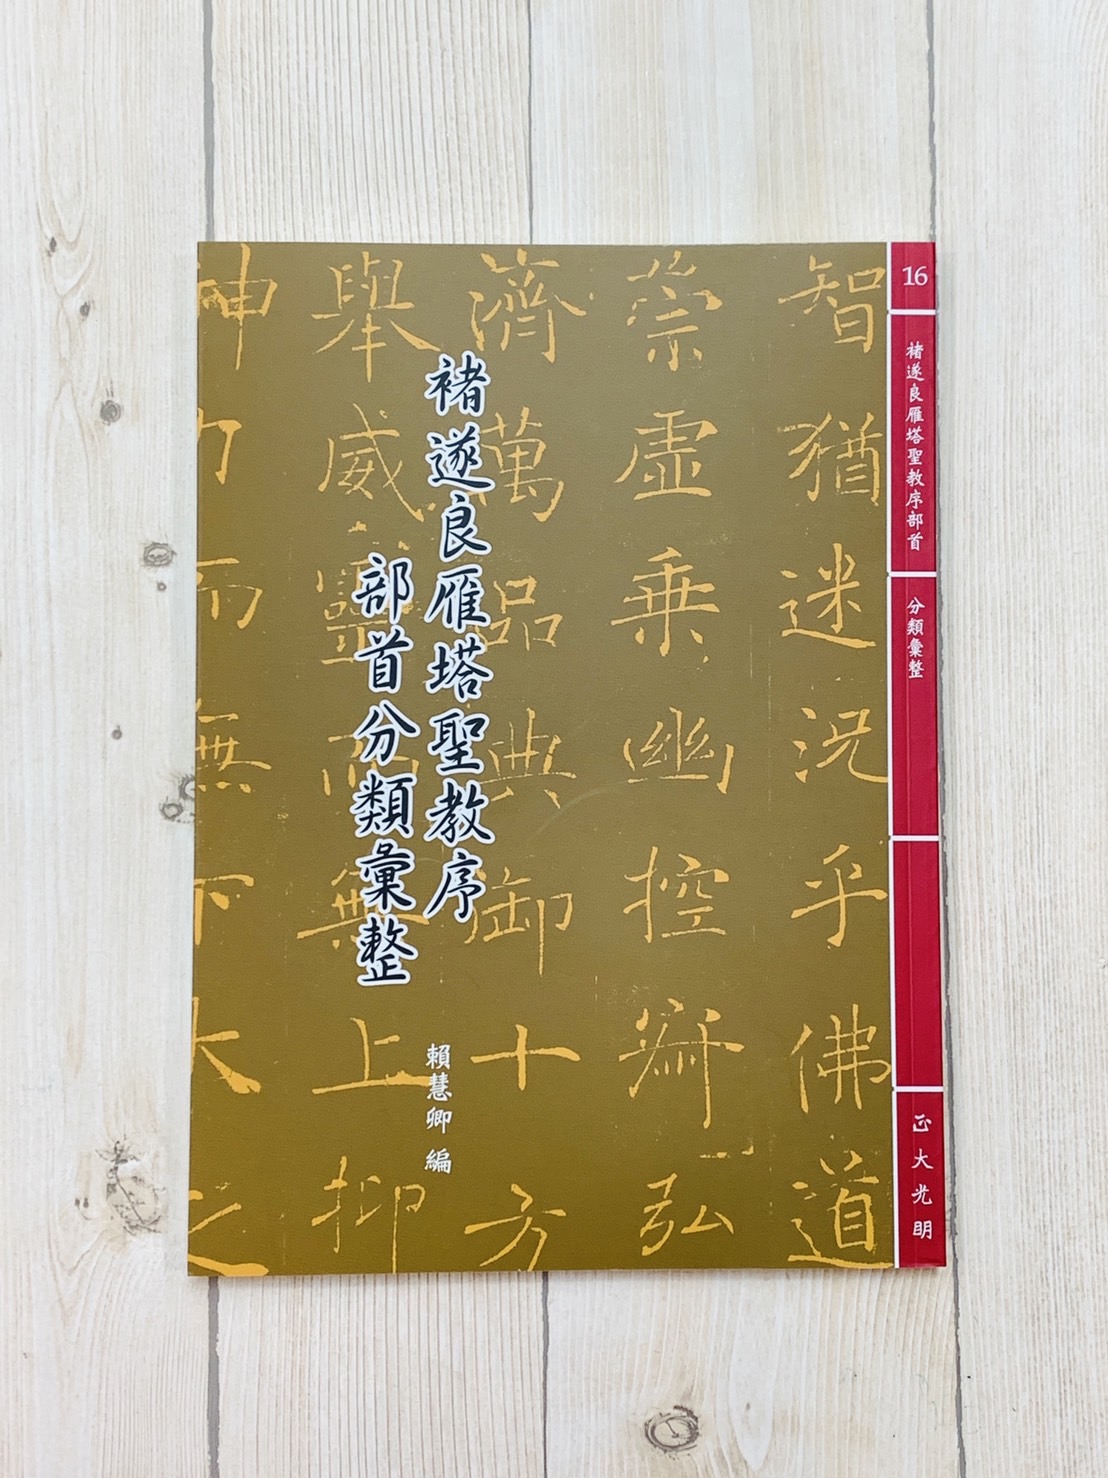 褚遂良雁塔聖教序
部首分類彙整
賴慧卿 編
16
褚遂良雁塔聖教序部首
分類彙整
正大光明
智猶迷況乎佛道
崇虛乘幽控寂弘
濟萬品典御十方
舉威靈而無上抑
神力而無下大之